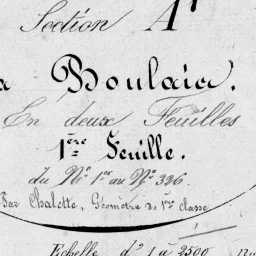 Section A¹
a Boulaia.
En deux Feuilles
1ère Feuille.
du N° 1er au N° 336.
Par Chalette, Géomètre de 1re Classe
Echelle de 1 à 2500